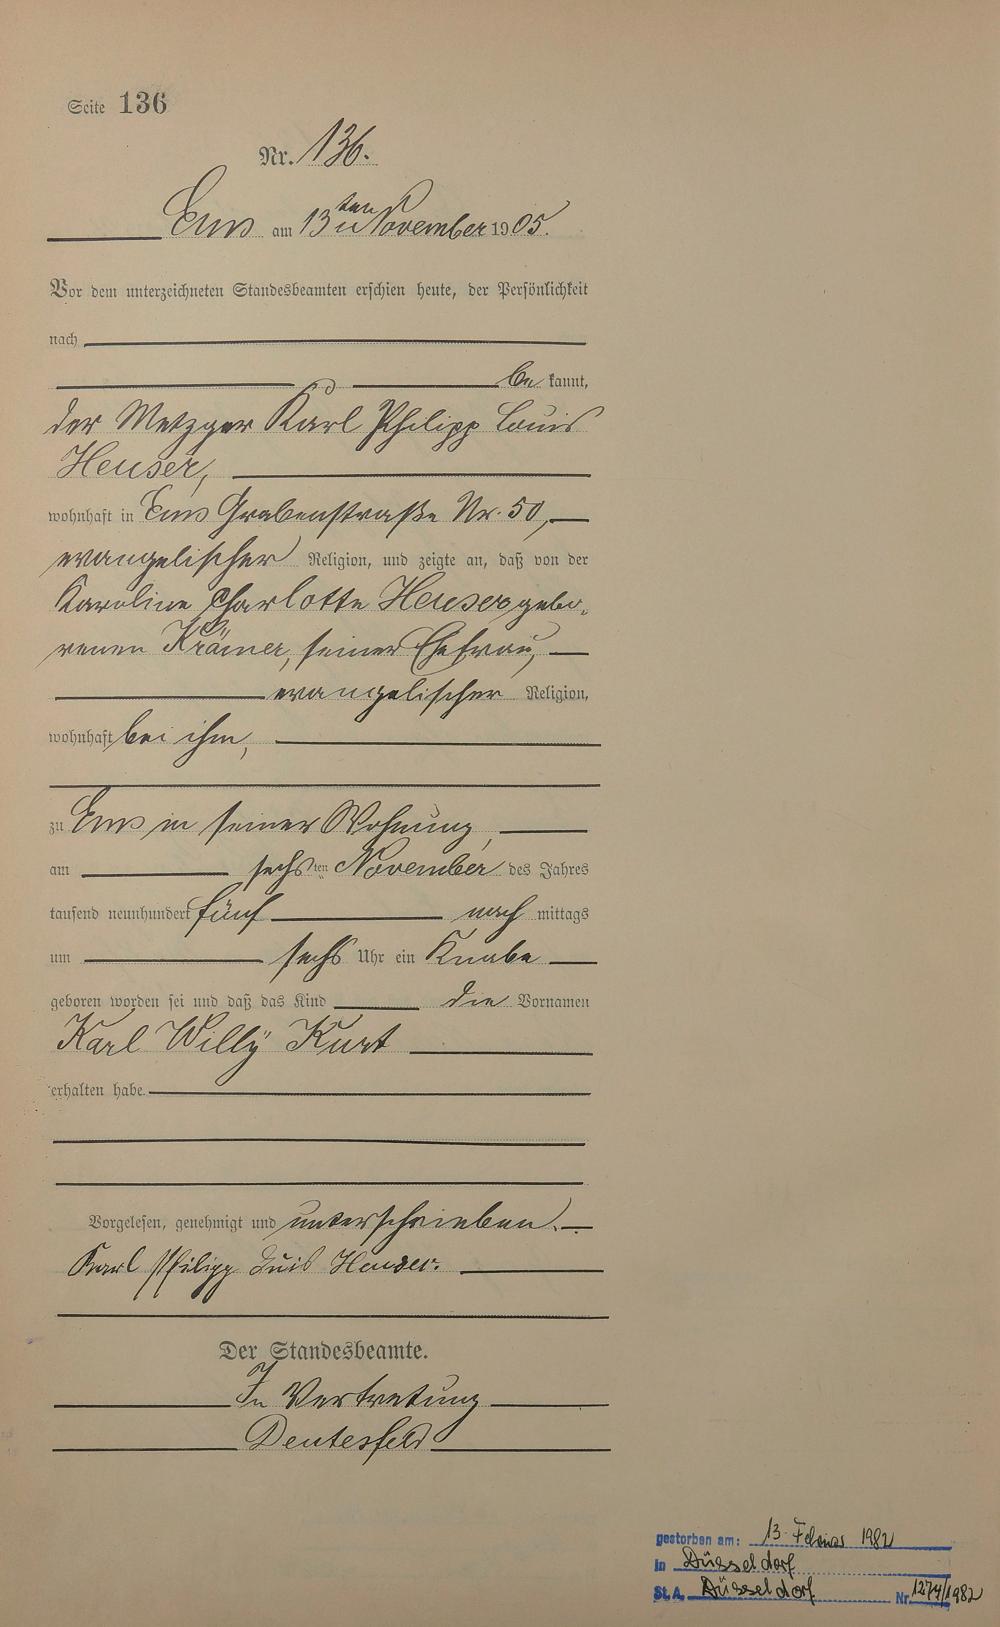 Seite 136
Nr. 136.
Ems am 13ten November 1905.
Vor dem unterzeichneten Standesbeamten erschien heute, der Persönlichkeit
nach
be kannt,
der Metzger Karl Philipp Louis
Heuser,
wohnhaft in Ems Grabenstraße Nr. 50,
evangelischer Religion, und zeigte an, daß von der
Karoline Charlotte Heuser gebo-
renen Krämer, seiner Ehefrau,
evangelischer Religion,
wohnhaft bei ihm,
zu Ems in seiner Wohnung,
am sechsten November des Jahres
tausend neunhundert fünf nach mittags
um sechs Uhr ein Knabe
geboren worden sei und daß das Kind die Vornamen
Karl Willÿ Kurt
erhalten habe.
Vorgelesen, genehmigt und unterschrieben.
Karl Philipp Luis Heuser.
Der Standesbeamte.
In Vertretung
gestorben am: 13. Februar 1982
in Düsseldorf
St.A. Düsseldorf Nr. 1274/1982